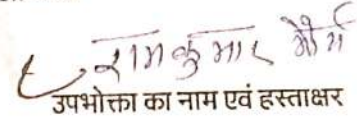 रामकुमार मौर्य
उपभोक्ता का नाम एवं हस्ताक्षर